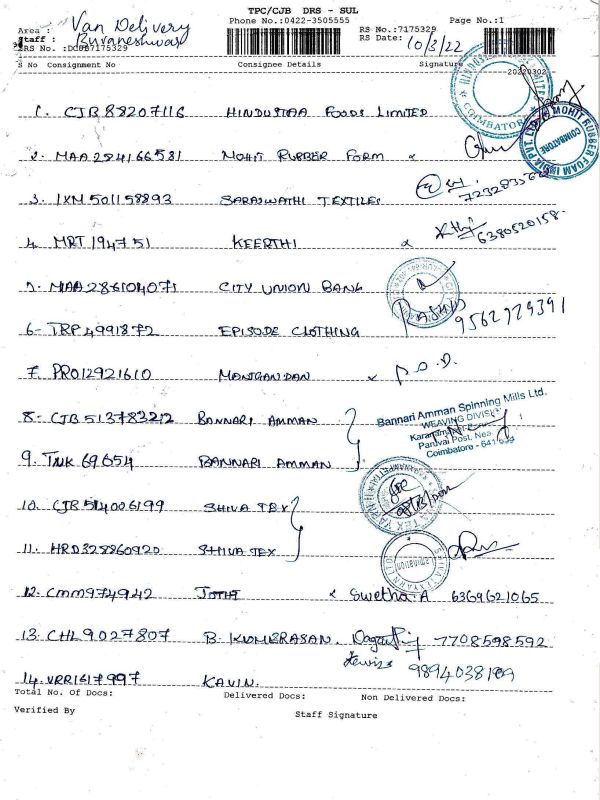 TPC/CJB DRS - SUL
Area : Van Delivery Phone No.:0422-3505555 Page No.:1
Staff : Buvaneshwar RS No.:7175329
DRS No. :DCJB7175329 RS Date: 10/3/22
S No Consignment No Consignee Details Signature
20220302
1. CJB 88207116 HINDUSTAA FOODS LIMITED
COIMBATORE
2. MAA 284166581 MOHIT RUBBER FORM
MOHIT RUBBER FOAM INDIA PVT. LTD.
COIMBATORE
3. IXM 501158893 SARASWATHI TEXTILES
4. MRT 194751 KEERTHI 6380520158.
5. MAA 286104071 CITY UNION BANG
6- TRP 4991872 EPISODE CLOTHING RASHID 9562929391
7. PRO12921610 MANIGANDAN P.O.D.
8- CJB 513783212 BANNARI AMMAN
Bannari Amman Spinning Mills Ltd.
WEAVING DIVISION
Paruvai Post, Nea
Coimbatore - 641
9. TNK 69654 BANNARI AMMAN
10. CJB 514006199 SHIVA TEX
11. HRD328860920 SHIVA TEX
12. CMM974942 JOTHI Swetha.A 6369621065
13. CHL9027807 B. KUMERASAN. 7708598592
14. VRR1617997 KAVIN. 9894038189
Total No. Of Docs: Delivered Docs: Non Delivered Docs:
Verified By Staff Signature